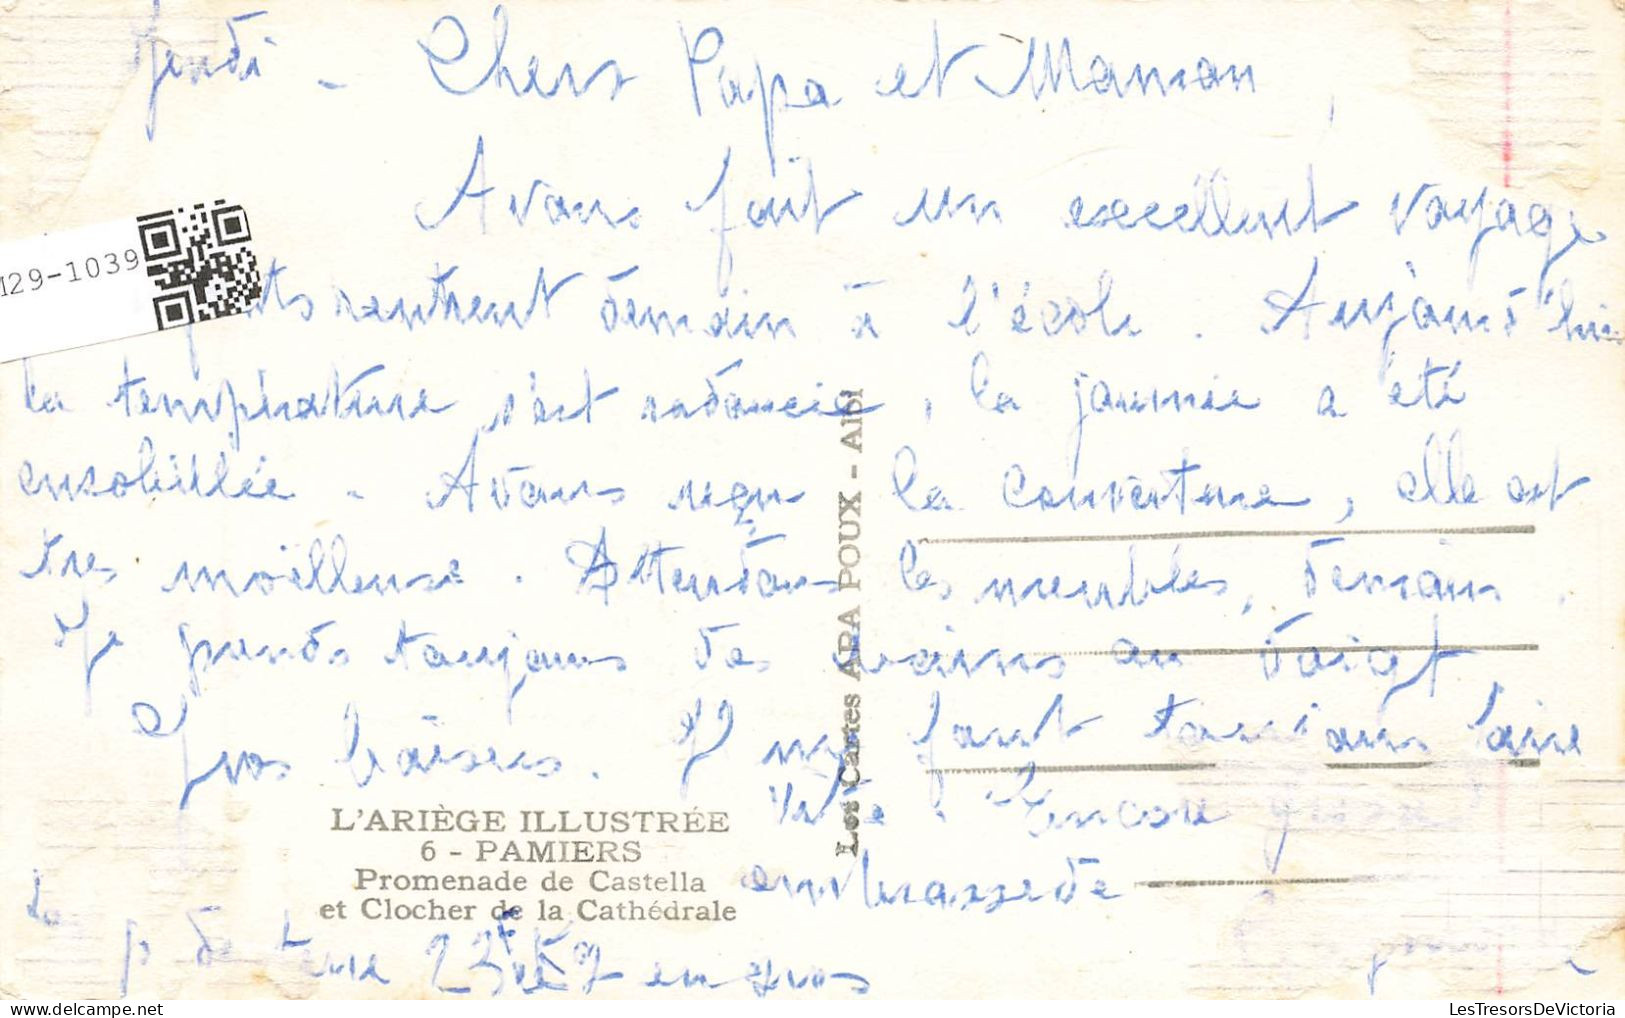 Jeudi - Chers Papa et Maman,
Avons fait un excellent voyage
M29-1039
rentrent demain à l'école. Aujourd'hui
la température s'est radoucie, la journée a été
ensoleillée - Avons reçu la couverture, elle est
très moëlleuse. Attendons les meubles, demain.
Je prends toujours des bains au doigt
Gros baisers. Il me faut toujours faire
vite. Encore
embrassede
L'ARIÈGE ILLUSTRÉE
6 - PAMIERS
Promenade de Castella
et Clocher de la Cathédrale
La p de terre 23F le en gros
Les Cartes APA POUX - Albi
LesTresorsDeVictoria.com